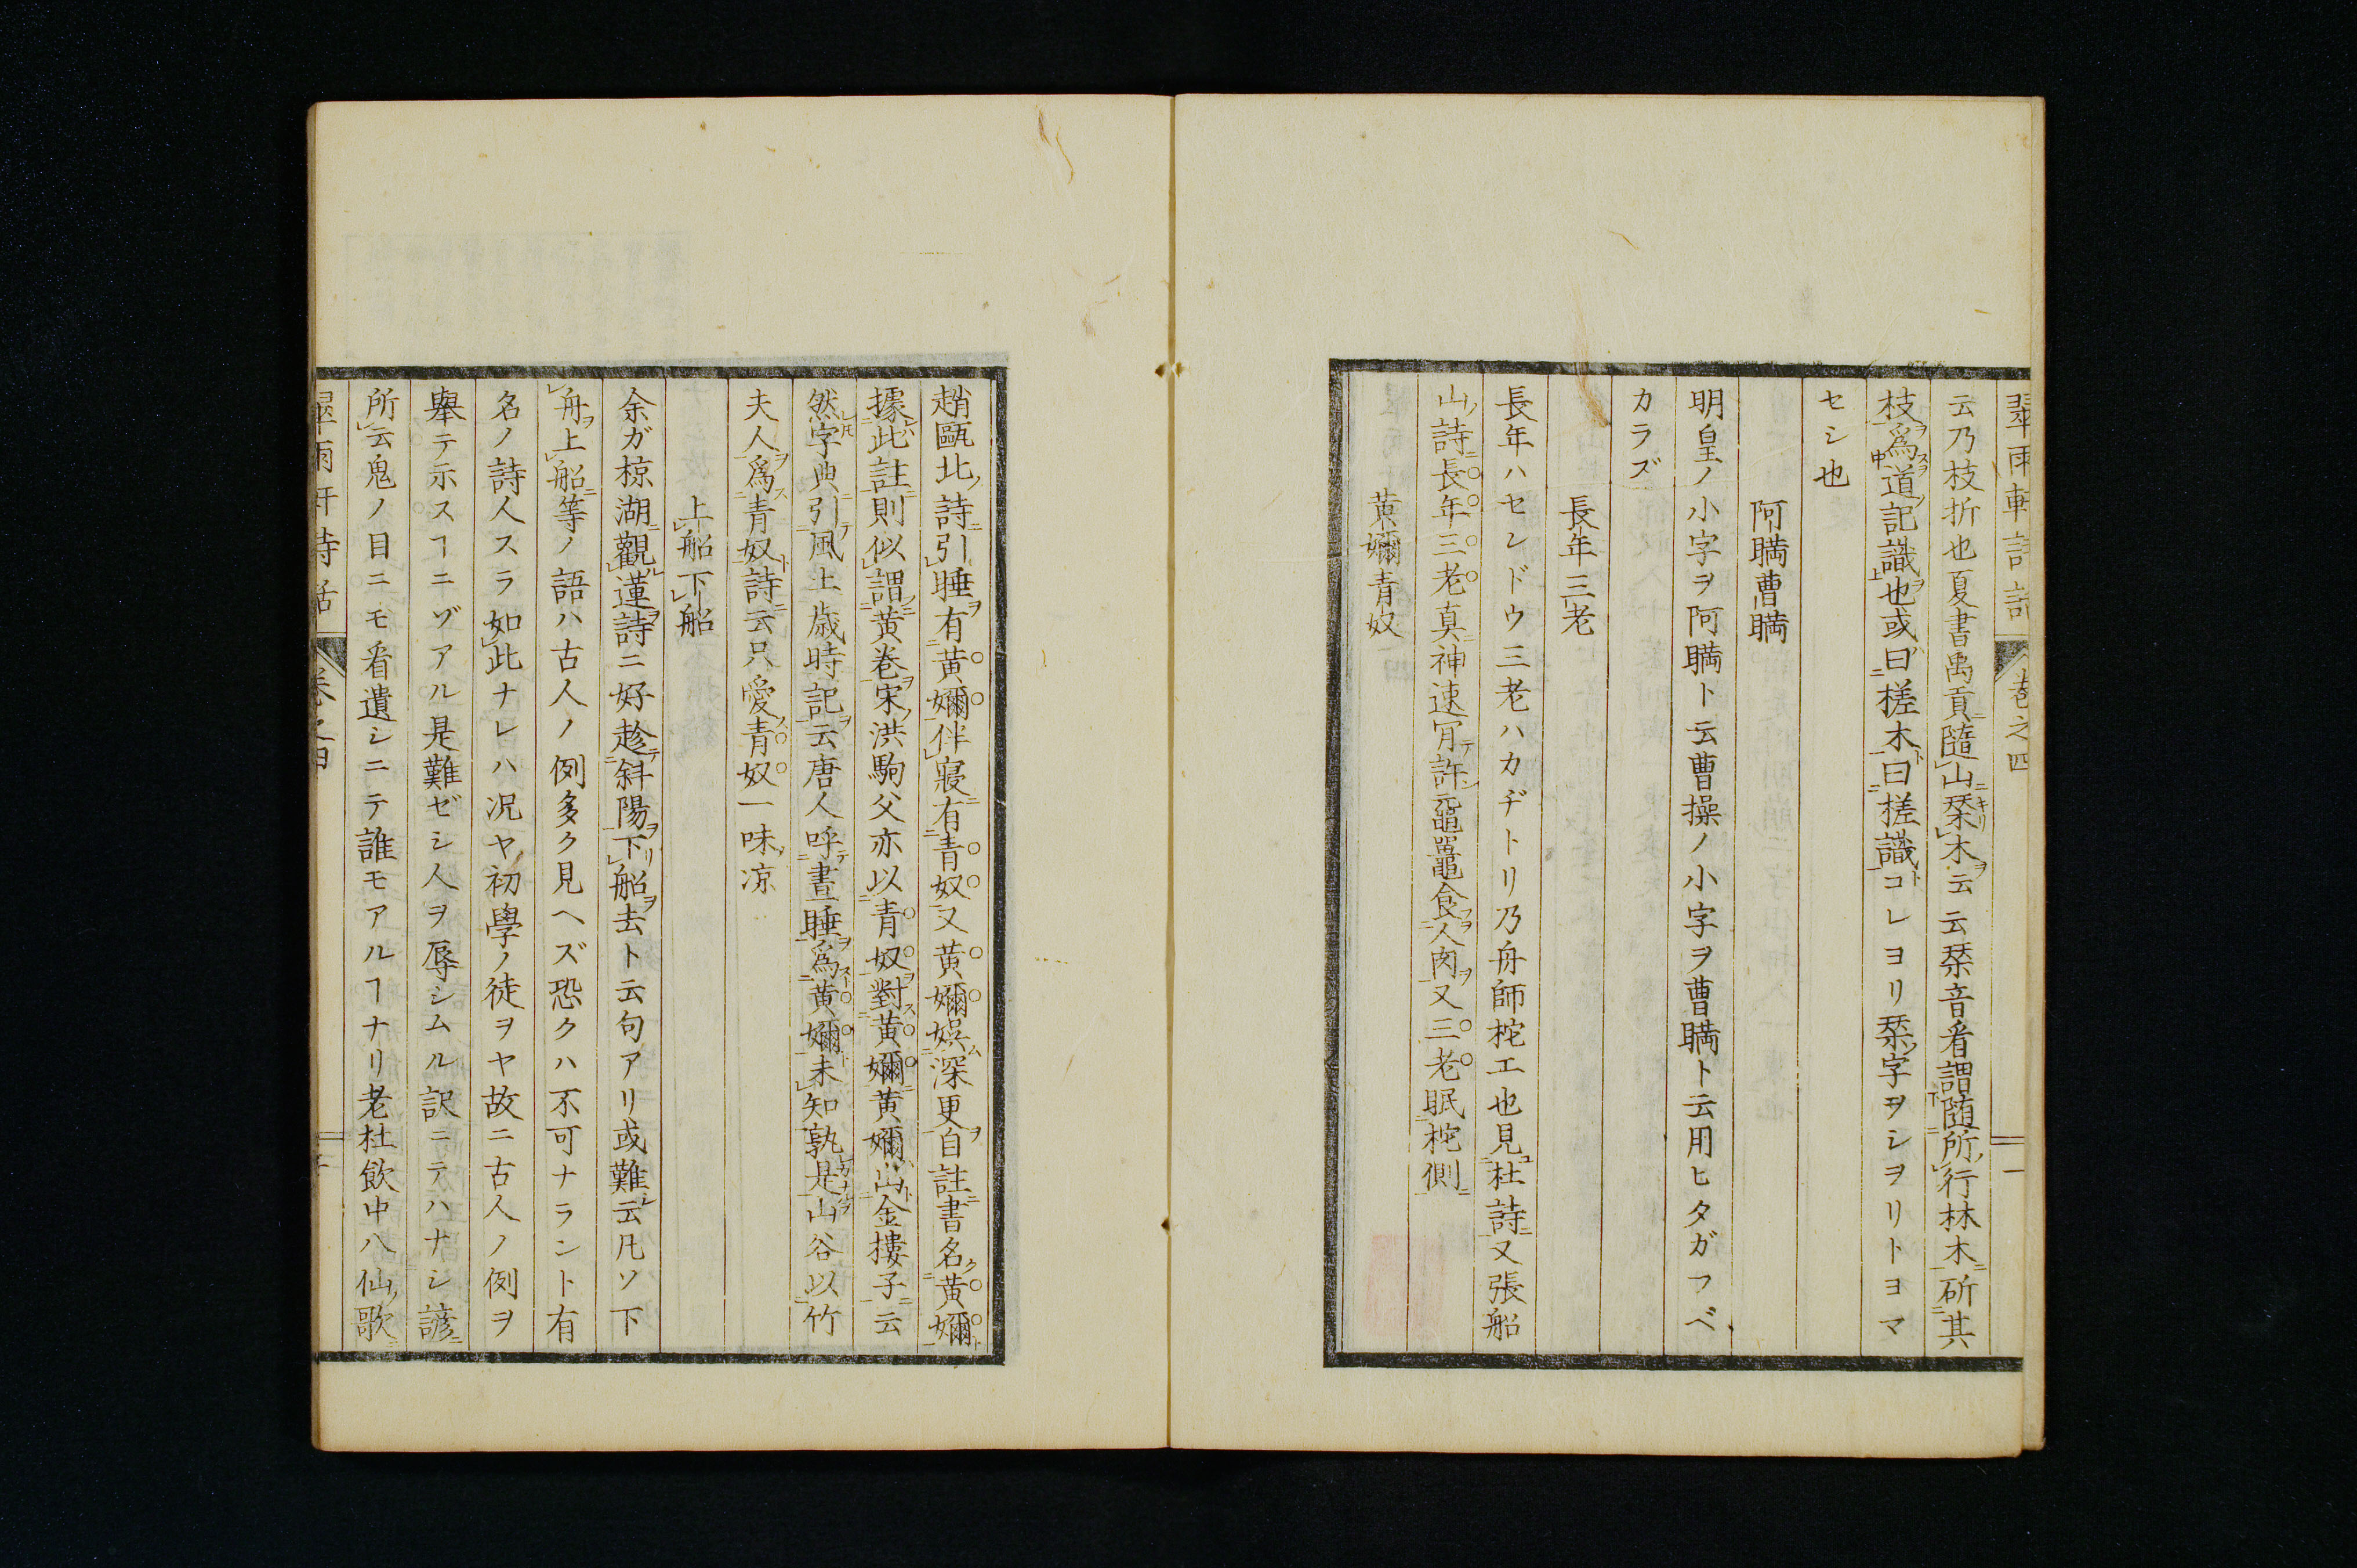 翠雨軒詩話 卷之四 一
云乃枝折也夏書禹貢隨山栞木云云栞音看謂随所行林木斫其
枝爲道記識也或曰槎木曰槎識コレヨリ栞字ヲシヲリトヨマ
セシ也
阿瞞曹瞞
明皇ノ小字ヲ阿瞞ト云曹操ノ小字ヲ曹瞞ト云用ヒタガフベ
カラズ
長年三老
長年ハセンドウ三老ハカヂトリ乃舟師柁工也見杜詩又張船
山詩長年三老真神速肎許黿鼉食人肉又三老眠柁側
黄嬭青奴
趙甌北詩引睡有黄嬭伴寢有青奴又黄嬭娯深更自註書名黄嬭
據此註則似謂黄卷宋洪駒父亦以青奴對黄嬭黄嬭出金摟子云
然字典引風土歳時記云唐人呼晝睡爲黄嬭未知孰是山谷以竹
夫人爲青奴詩云只愛青奴一味凉
上船下船
余ガ椋湖觀蓮詩ニ好趁斜陽下船去ト云句アリ或難云凡ソ下
舟上船等ノ語ハ古人ノ例多ク見ヘズ恐クハ不可ナラント有
名ノ詩人スラ如此ナレハ况ヤ初學ノ徒ヲヤ故ニ古人ノ例ヲ
舉テ示スヿニゾアル是難ゼシ人ヲ辱シムル訳ニテハナシ諺
所云鬼ノ目ニモ看遺シニテ誰モアルヿナリ老杜飲中八仙歌
翠雨軒詩話 卷之四